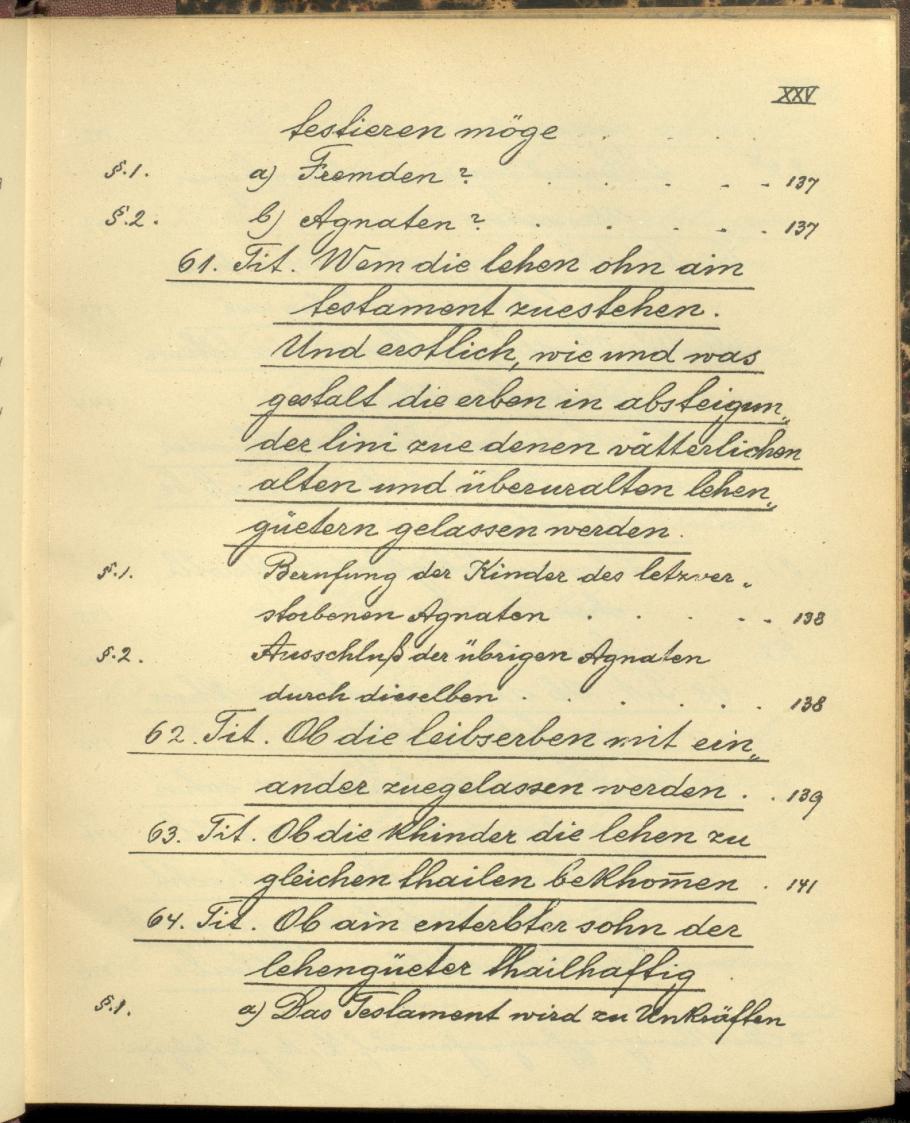 XXV
testieren möge . . . .
§.1. a) Fremden ? . . . - - 137
§.2. b) Agnaten ? . . . . . 137
61. Tit. Wem die lehen ohn ain
testament zuestehen.
Und erstlich, wie und was
gestalt die erben in absteigun„
der lini zue denen vätterlichen
alten und überuralten lehen„
güetern gelassen werden.
§.1. Berufung der Kinder des letzver„
storbenen Agnaten . . . . . 138
§.2. Ausschluß der übrigen Agnaten
durch dieselben . . . . . . 138
62. Tit. Ob die leibserben mit ein„
ander zuegelassen werden . . 139
63. Tit. Ob die khinder die lehen zu
gleichen thailen bekhom̄en . 141
64. Tit. Ob ain enterbter sohn der
lehengüeter thailhaftig .
§.1. a) Das Testament wird zu Unkräften